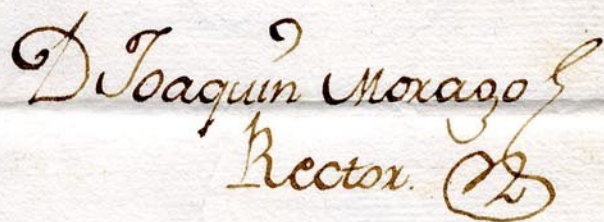 D Joaquin Morago
Rector.